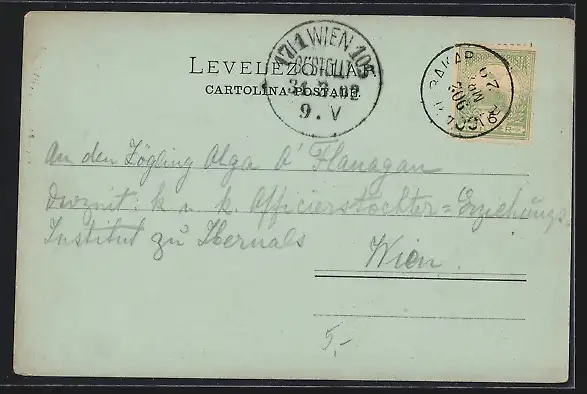 LEVELEZŐ-LAP
CARTOLINA POSTALE
17/1 WIEN 105
BESTELLT
31.3.02
9.V
BAKAR
902
An den Zögling Olga O' Flanagan
derzeit: k u. k. Officierstöchter=Erziehungs-
Institut zu Hernals
Wien
5,-